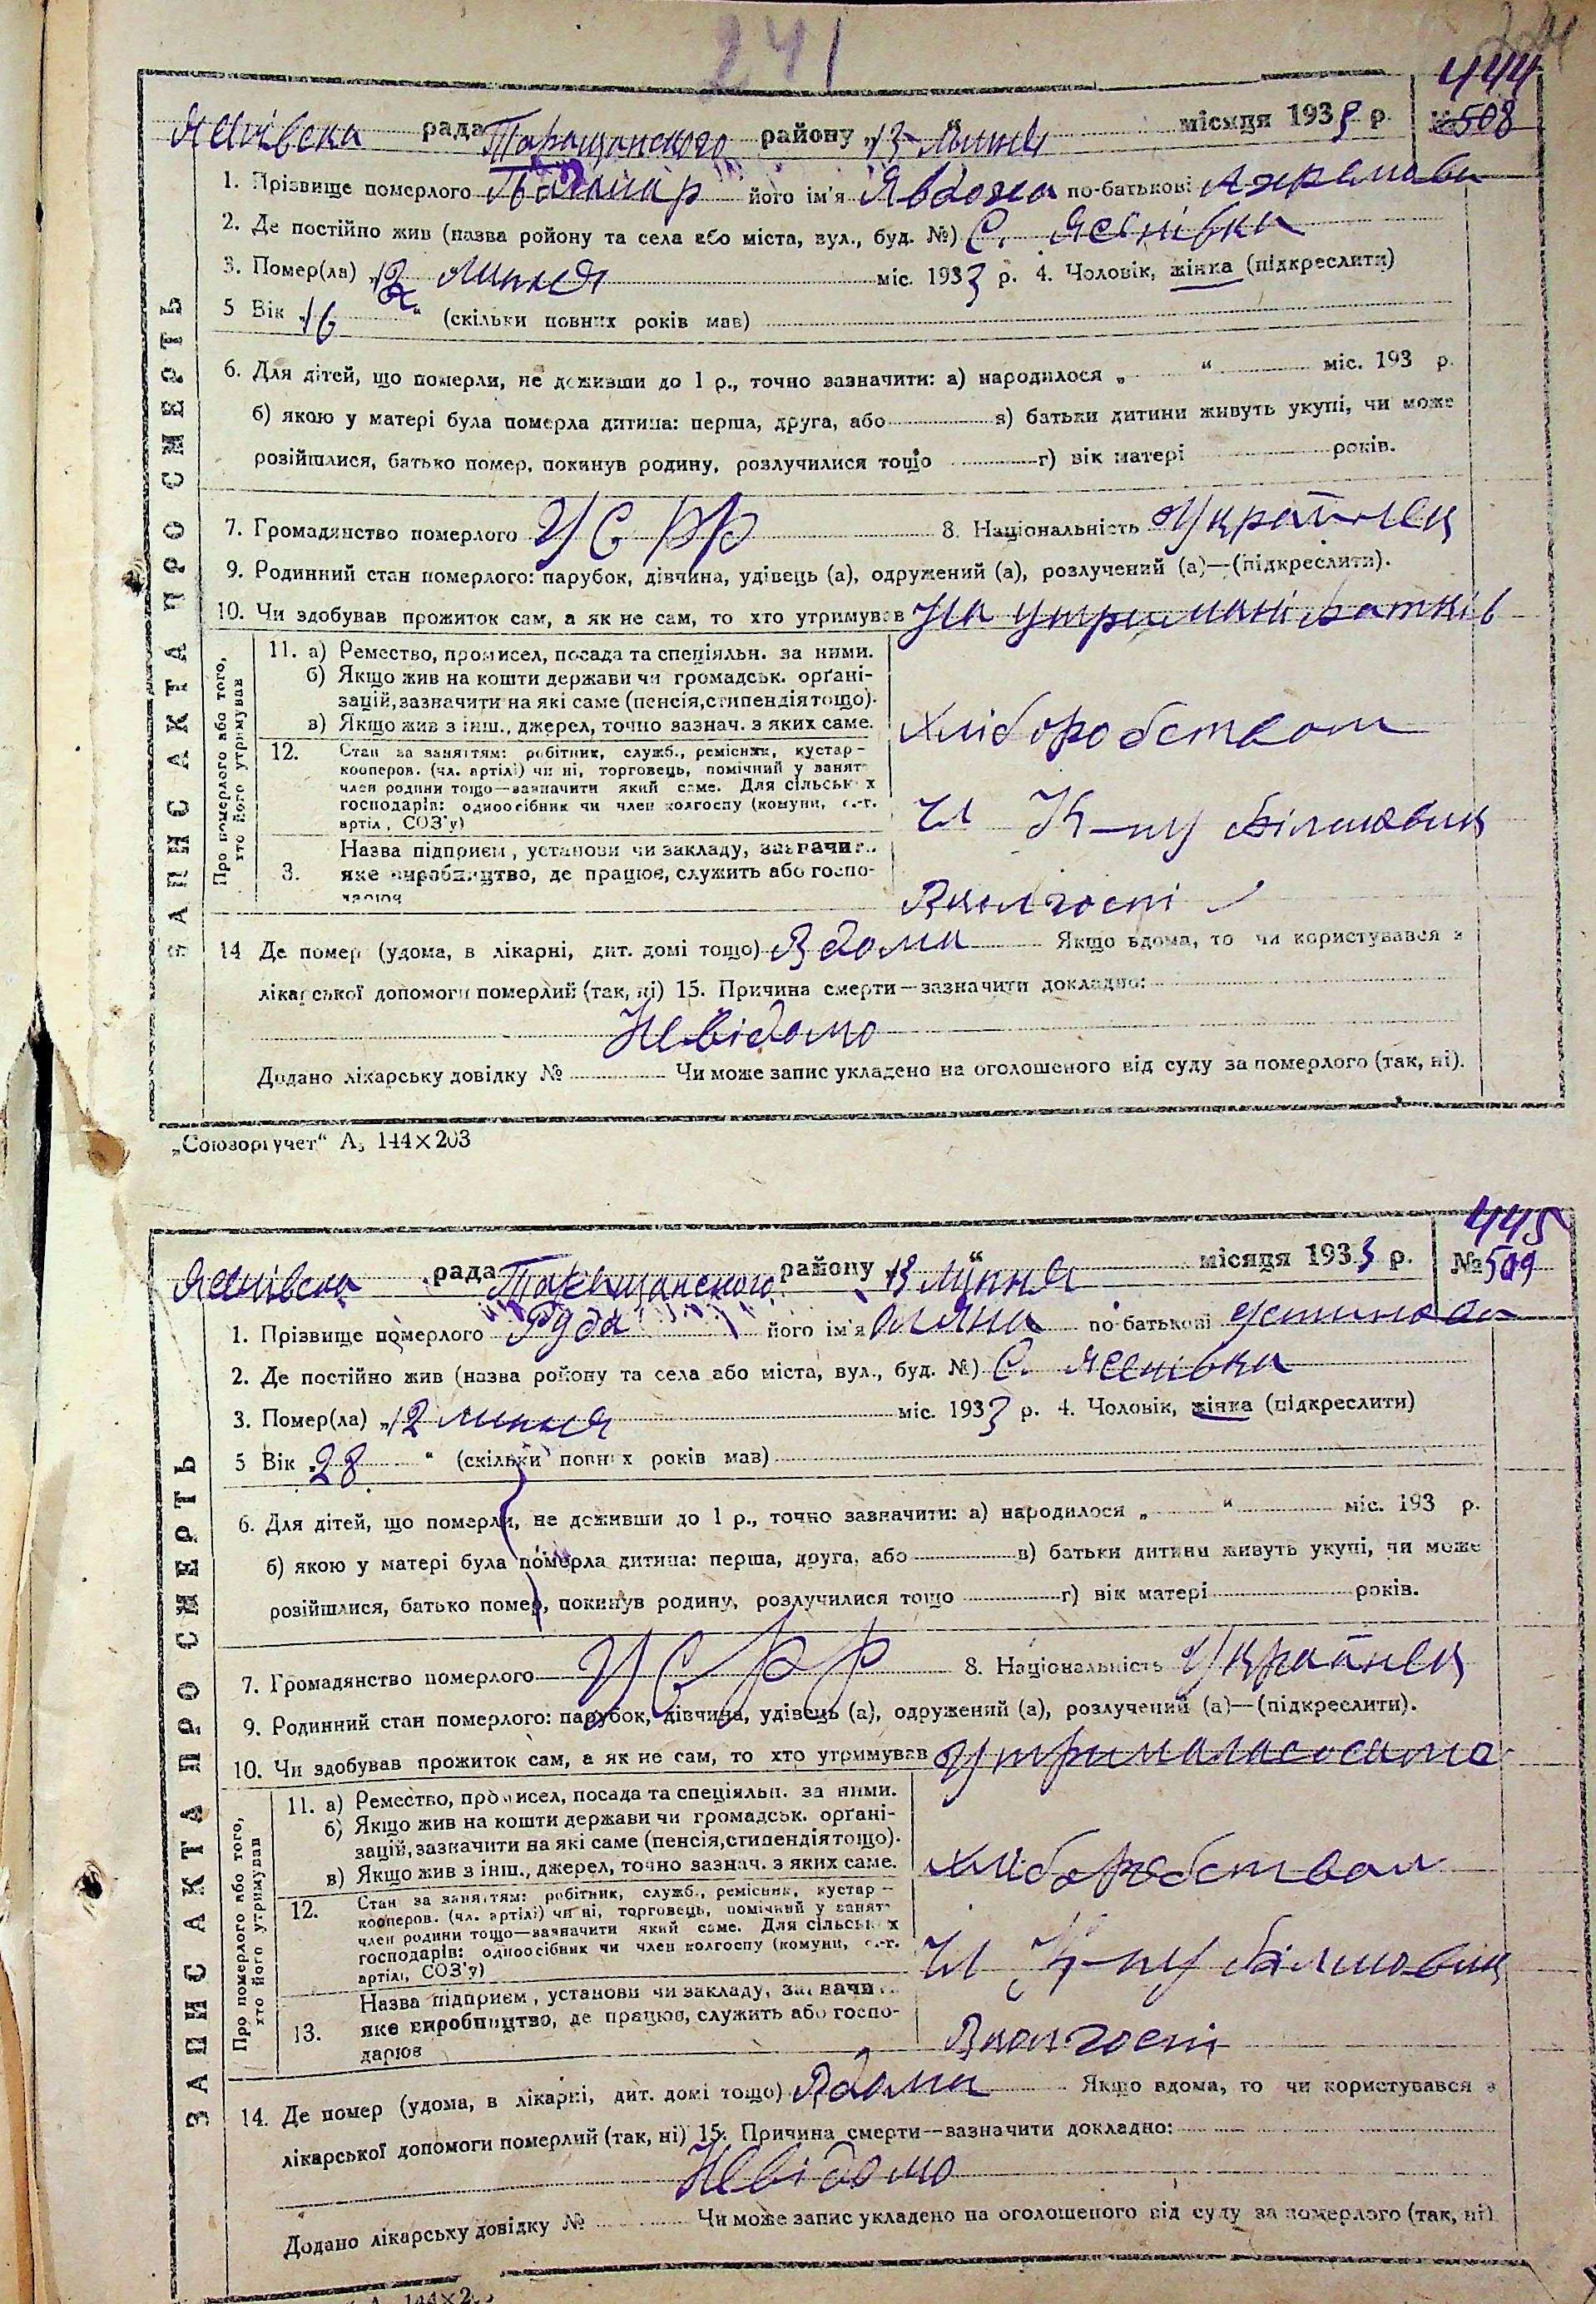 241
444
Яснівська рада Таращанського району „13“ Липня місяця 1933 р. №508
1. Прізвище померлого Паламар його ім'я Явдоха по-батькові
2. Де постійно жив (назва ройону та села або міста, вул., буд. №) С. Яснівка
3. Помер(ла) „12 Липня міс. 1933 р. 4. Чоловік, жінка (підкреслити)
5 Вік „16“ (скільки повних років мав)
6. Для дітей, що померли, не доживши до 1 р., точно зазначити: а) народилося „ “ міс. 193 р.
б) якою у матері була померла дитина: перша, друга, або в) батьки дитини живуть укупі, чи може
розійшлися, батько помер, покинув родину, розлучилися тощо г) вік матері років.
7. Громадянство померлого УСРР 8. Національність Українец
9. Родинний стан померлого: парубок, дівчина, удівець (а), одружений (а), розлучений (а)—(підкреслити).
10. Чи здобував прожиток сам, а як не сам, то хто утримував На утримані батьків
ЗАПИС АКТА ПРО СМЕРТЬ
Про померлого або того, хто його утримував
11. а) Ремество, промисел, посада та спеціяльн. за ними.
б) Якщо жив на кошти держави чи громадськ. орґані-
зацій, зазначити на які саме (пенсія, стипендія тощо).
в) Якщо жив з інш., джерел, точно зазнач. з яких саме. Хліборобством
12. Стан за заняттям: робітник, служб., ремісник, кустар—
кооперов. (чл. артілі) чи ні, торговець, помічний у занят-
член родини тощо—зазначити який саме. Для сільських
господарів: одноосібник чи член колгоспу (комуни, с.-г. Чл К-пу Більшовик
артіл, СОЗ'у)
Назва підприєм, установи чи закладу, зазначи..
3. яке виробництво, де працює, служить або госпо-
дарює Вколгоспі
14 Де помер (удома, в лікарні, дит. домі тощо) Вдома Якщо вдома, то чи користувався з
лікарської допомоги померлий (так, ні) 15. Причина смерти—зазначити докладно:
Невідомо
Додано лікарську довідку № Чи може запис укладено на оголошеного від суду за померлого (так, ні).
„Союзоргучет“ А5 144×203
445
Яснівська рада Таращанського району „13 Липня“ місяця 1933 р. №509
1. Прізвище померлого Руда його ім'я Оляна по-батькові Устинова
2. Де постійно жив (назва ройону та села або міста, вул., буд. №) С. Яснівка
3. Помер(ла) „12 липня міс. 1933 р. 4. Чоловік, жінка (підкреслити)
5 Вік „28“ (скільки повних років мав)
6. Для дітей, що померли, не доживши до 1 р., точно зазначити: а) народилося „ “ міс. 193 р.
б) якою у матері була померла дитина: перша, друга, або в) батьки дитини живуть укупі, чи може
розійшлися, батько помер, покинув родину, розлучилися тощо г) вік матері років.
7. Громадянство померлого УСРР 8. Національність Українец
9. Родинний стан померлого: парубок, дівчина, удівець (а), одружений (а), розлучений (а)—(підкреслити).
10. Чи здобував прожиток сам, а як не сам, то хто утримував
ЗАПИС АКТА ПРО СМЕРТЬ
Про померлого або того, хто його утримував
11. а) Ремество, промисел, посада та спеціяльн. за ними.
б) Якщо жив на кошти держави чи громадськ. орґані-
зацій, зазначити на які саме (пенсія, стипендія тощо).
в) Якщо жив з інш., джерел, точно зазнач. з яких саме. Хліборобством
12. Стан за заняттям: робітник, служб., ремісник, кустар—
кооперов. (чл. артілі) чи ні, торговець, помічний у занят-
член родини тощо—зазначити який саме. Для сільських
господарів: одноосібник чи член колгоспу (комуни, с.-г. Чл К-пу Більшовик
артілі, СОЗ'у)
Назва підприєм, установи чи закладу, зазначи..
13. яке виробництво, де працює, служить або госпо-
дарює Вколгоспі
14. Де помер (удома, в лікарні, дит. домі тощо) Вдома Якщо вдома, то чи користувався з
лікарської допомоги померлий (так, ні) 15. Причина смерти—зазначити докладно:
Невідомо
Додано лікарську довідку № Чи може запис укладено на оголошеного від суду за померлого (так, ні)